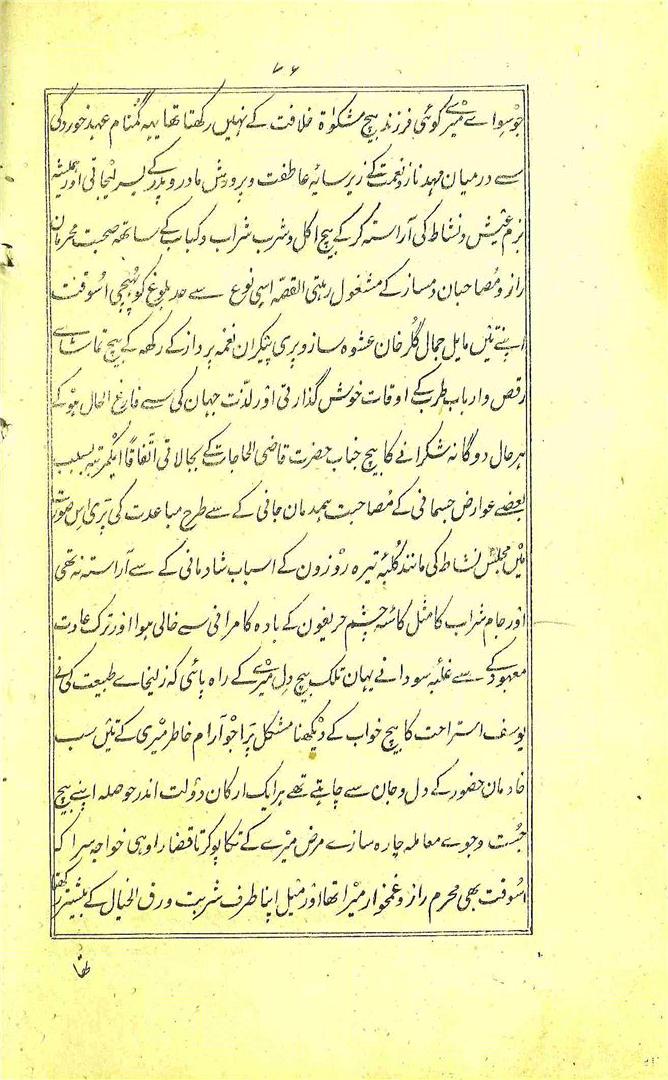 ٧٦
جو سواے میرے کوئی فرزند بیچ مشکوٰۃ خلافت کے نہیں رکھتا تھا یہہ گمنام عہد خوردگی
سے درمیان مہد ناز و نعمت کے زیر سایۂ عاطفت و پرورش مادر و پدر کے بسر لیجاتی اور ہمیشہ
بزم عیش و نشاط کی آراستہ کرکے بیچ اکل و شرب شراب و کباب کے ساتھہ صحبت محرمان
راز و مصاحبان دمساز کے مشغول رہتی القصہ اسی نوع سے حد بلوغ کو پہنچی اسوقت
اپنے تئیں مایل جمال گلرخان عشوہ ساز و پری پیکران نغمہ پرداز کے رکھہ کے بیچ تماشاے
رقص و ارباب طرب کے اوقات خوش گذارتی اور لذت جہان کی سے فارغ الحال ہو کے
ہر حال دوگانہ شکرانے کا بیچ جناب حضرت قاضی الحاجات کے بجالاتی اتفاقاً ایکمرتبہ بسبب
بعضے عوارض جسمانی کے مصاحبت ہمدمان جانی کے سے طرح مباعدت کی پڑی اس صورت
میں مجلس نشاط کی مانند کلبۂ تیرہ روزون کے اسباب شادمانی کے سے آراستہ نہ تھی
اور جام شراب کا مثل کاسۂ چشم حریفون کے بادہ کامرانی سے خالی ہوا اور ترک عادت
معہود کے سے غلبہ سودا نے یہان تلک بیچ دل میرے کے راہ پائی کہ زلیخاے طبیعت کی نے
یوسف استراحت کا بیچ خواب کے دیکھنا مشکل پڑا جو آرام خاطر میری کے تئیں سب
خادمان حضور کے دل و جان سے چاہتے تھے ہر ایک ارکان دولت اندر حوصلہ اپنے بیچ
جست و جوے معاملہ چارہ سازے مرض میرے کے تکاپو کرتا قضا را وہی خواجہ سرا کہ
اسوقت بھی محرم راز و غمخوار میرا تھا اور میل اپنا طرف شربت ورق الخیال کے بیشتر رکھتا
تھا